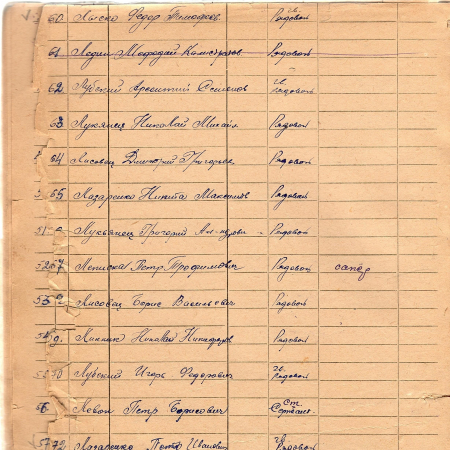 60. Лыско Федор Тимофеев. гв. Рядовой
61 Ледин Мефодий Рядовой
62 Лубский Арсентий Семенов гв. Рядовой
63 Лукянец Николай Михайл. Рядовой
64 Лисовец Дмитрий Григорьев. Рядовой
65 Лазаренко Никита Максимов Рядовой
Лукьянец Григорий Рядовой
52 Леписка Петр Трофимович Рядовой сапер
53 Лисовец Борис Васильевич Рядовой
Николай Никифоров Рядовой
Лубский Игорь Федорович гв. Рядовой
56 Левон Петр Борисович Ст. Сержант
57 72 Лазаренко Петр Иванович гв. Рядовой